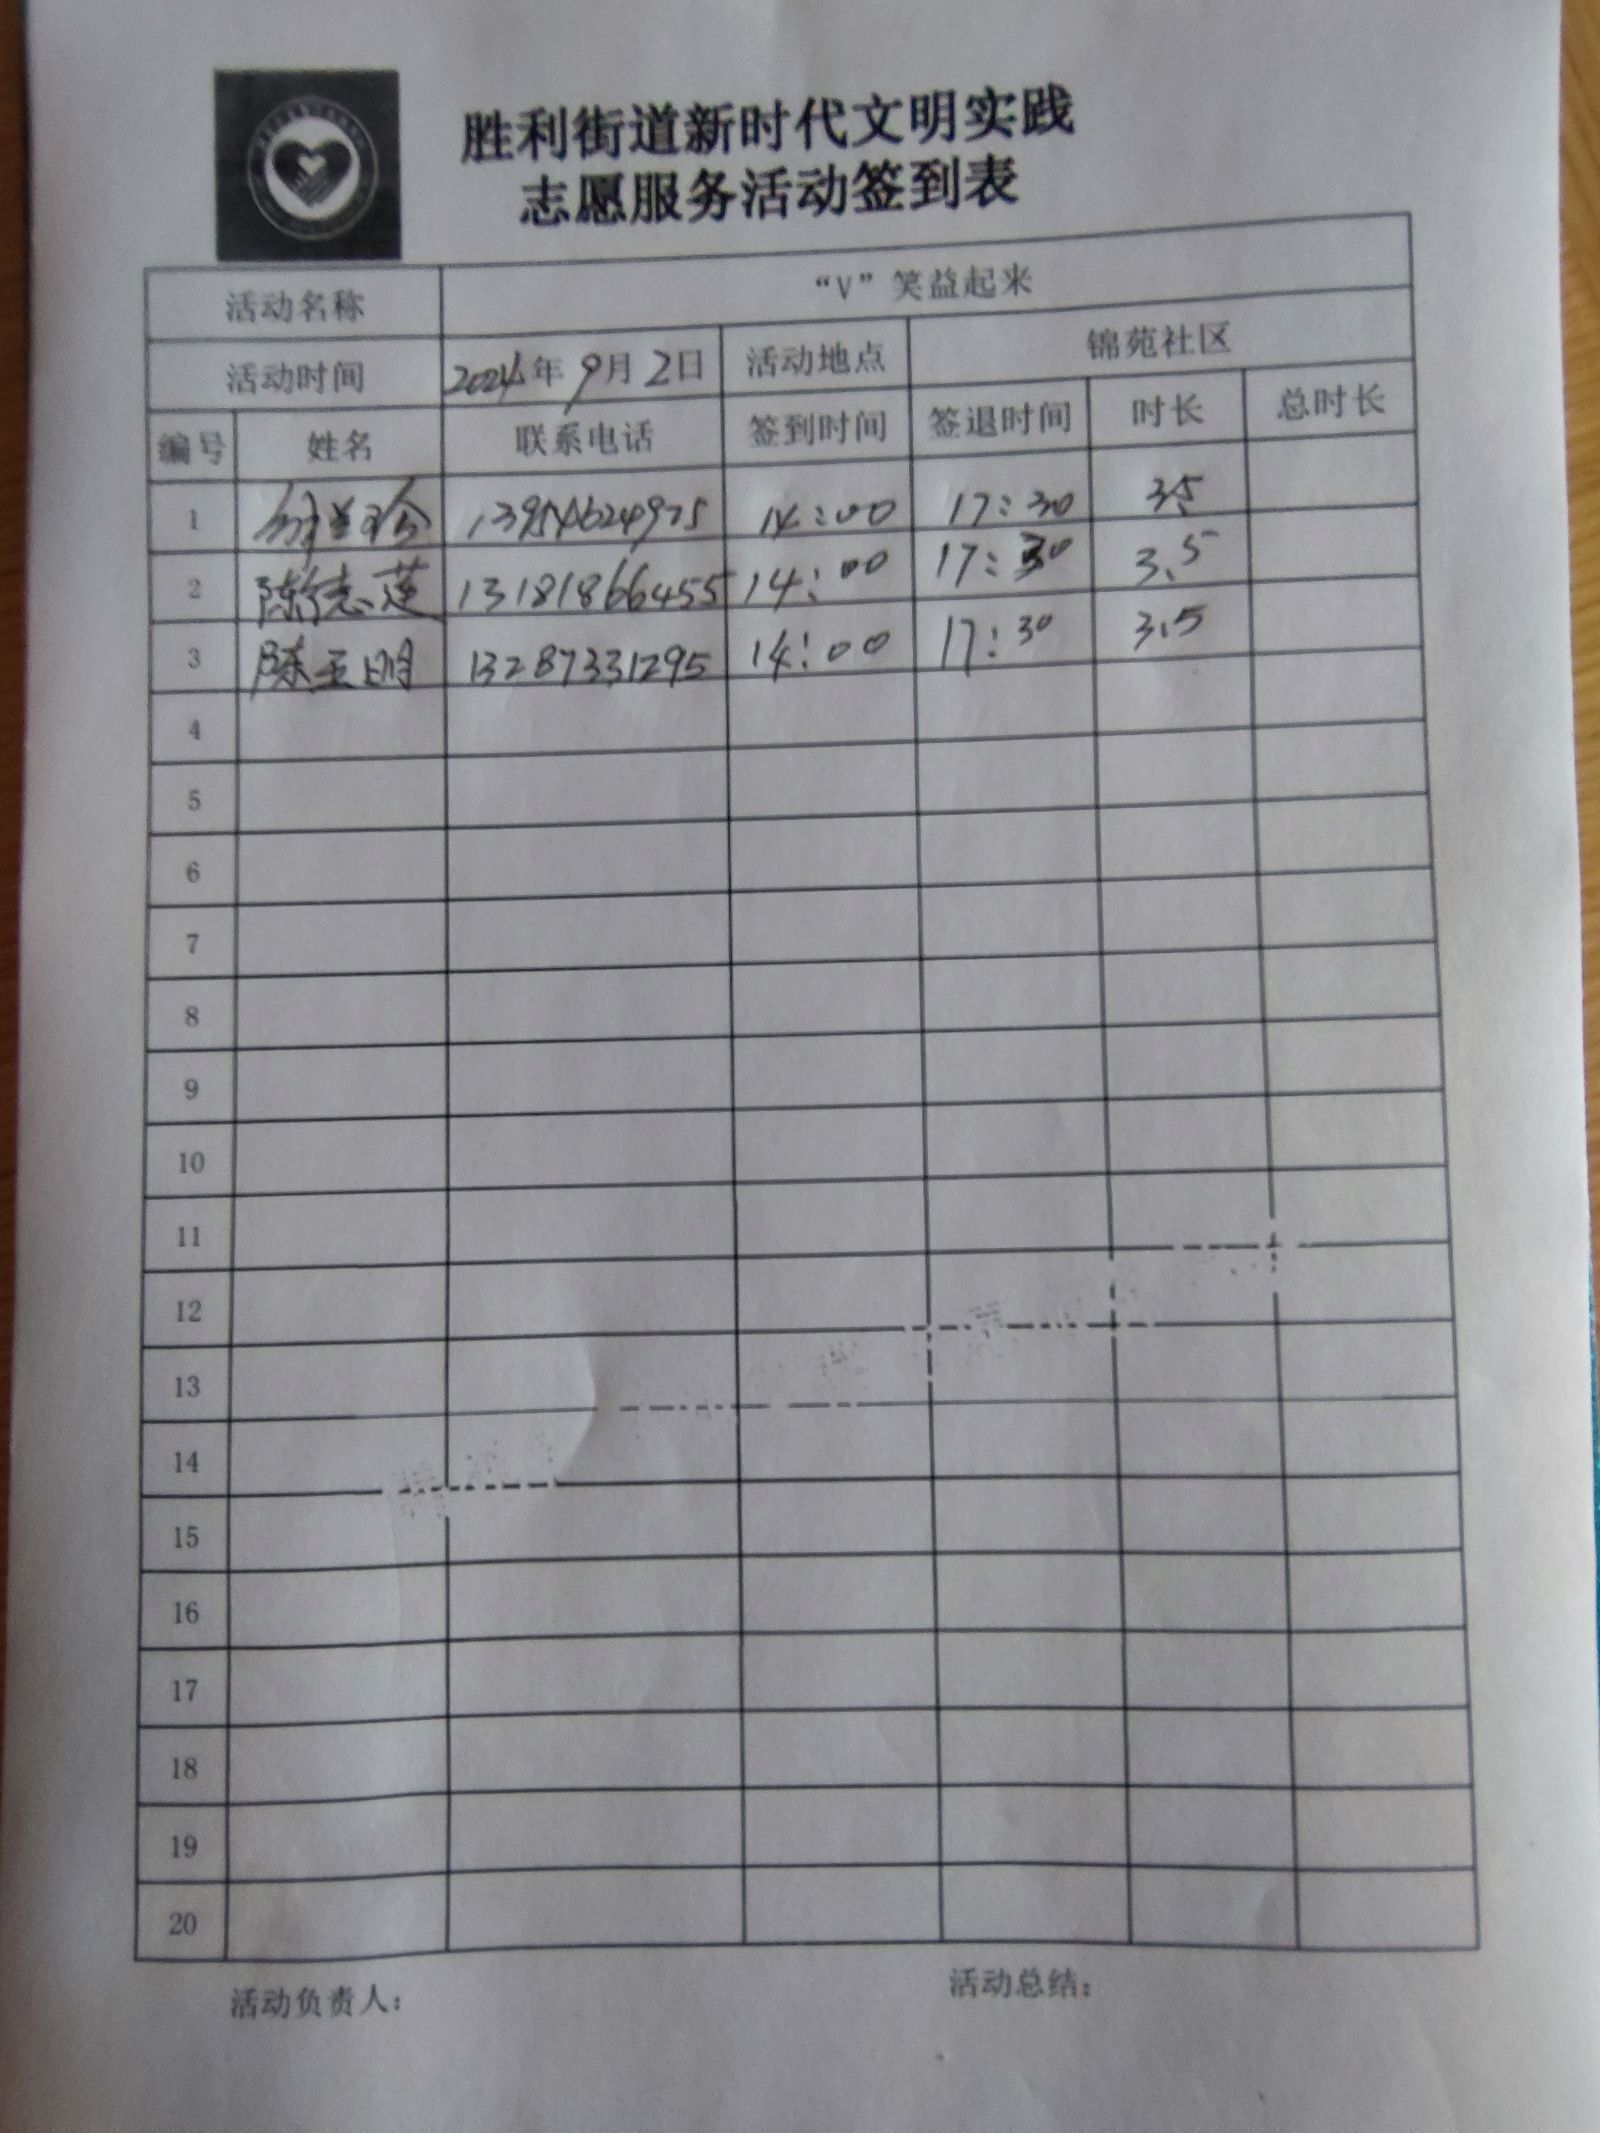 胜利街道新时代文明实践
志愿服务活动签到表
活动名称 “V”笑益起来
活动时间 2024年9月2日 活动地点 锦苑社区
编号 姓名 联系电话 签到时间 签退时间 时长 总时长
1 13954624975 14:00 17:30 3.5
2 陈德莲 13181866455 14:00 17:30 3.5
3 陈玉明 13287331295 14:00 17:30 3.5
4
5
6
7
8
9
10
11
12
13
14
15
16
17
18
19
20
活动负责人： 活动总结：